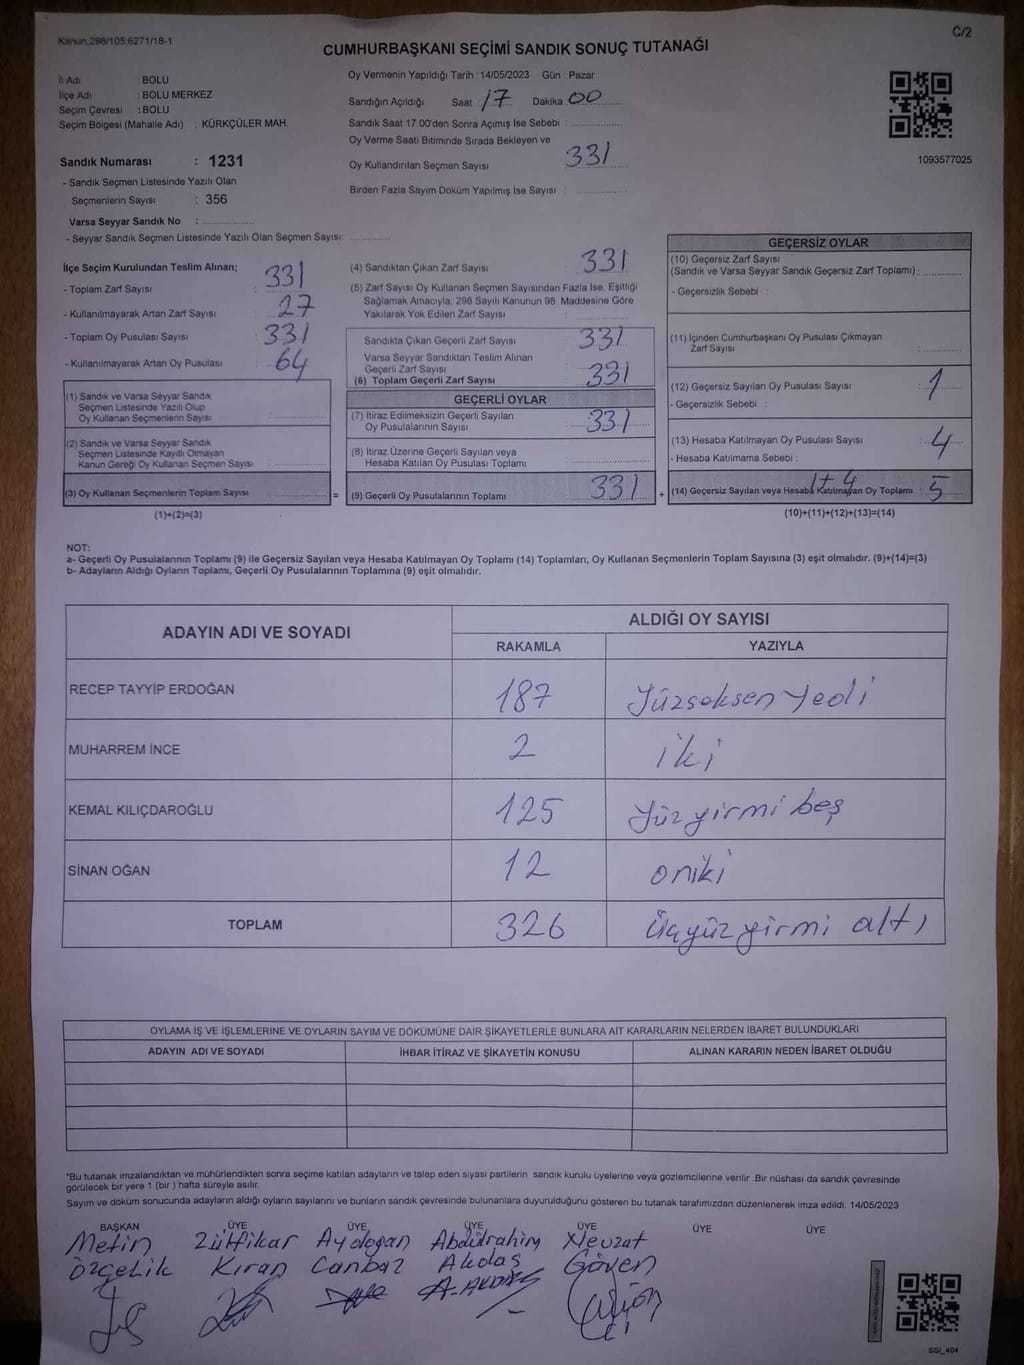 Kanun,298/105,6271/18-1
C/2
CUMHURBAŞKANI SEÇİMİ SANDIK SONUÇ TUTANAĞI
İl Adı : BOLU
İlçe Adı : BOLU MERKEZ
Seçim Çevresi : BOLU
Seçim Bölgesi (Mahalle Adı) : KÜRKÇÜLER MAH.
Sandık Numarası : 1231
- Sandık Seçmen Listesinde Yazılı Olan
Seçmenlerin Sayısı : 356
Varsa Seyyar Sandık No :
- Seyyar Sandık Seçmen Listesinde Yazılı Olan Seçmen Sayısı:
Oy Vermenin Yapıldığı Tarih : 14/05/2023 Gün : Pazar
Sandığın Açıldığı Saat 17 Dakika 00
Sandık Saat 17:00'den Sonra Açımış İse Sebebi :
Oy Verme Saati Bitiminde Sırada Bekleyen ve
Oy Kullandırılan Seçmen Sayısı 331
Birden Fazla Sayım Döküm Yapılmış İse Sayısı :
1093577025
İlçe Seçim Kurulundan Teslim Alınan;
- Toplam Zarf Sayısı : 331
- Kullanılmayarak Artan Zarf Sayısı : 27
- Toplam Oy Pusulası Sayısı : 331
- Kullanılmayarak Artan Oy Pusulası : 64
(1) Sandık ve Varsa Seyyar Sandık
Seçmen Listesinde Yazılı Olup
Oy Kullanan Seçmenlerin Sayısı :
(2) Sandık ve Varsa Seyyar Sandık
Seçmen Listesinde Kayıtlı Olmayan
Kanun Gereği Oy Kullanan Seçmen Sayısı :
(3) Oy Kullanan Seçmenlerin Toplam Sayısı :
(1)+(2)=(3)
=
(4) Sandıktan Çıkan Zarf Sayısı : 331
(5) Zarf Sayısı Oy Kullanan Seçmen Sayısından Fazla İse, Eşitliği
Sağlamak Amacıyla; 298 Sayılı Kanunun 98. Maddesine Göre
Yakılarak Yok Edilen Zarf Sayısı :
Sandıkta Çıkan Geçerli Zarf Sayısı : 331
Varsa Seyyar Sandıktan Teslim Alınan
Geçerli Zarf Sayısı :
(6) Toplam Geçerli Zarf Sayısı : 331
GEÇERLİ OYLAR
(7) İtiraz Edilmeksizin Geçerli Sayılan
Oy Pusulalarının Sayısı : 331
(8) İtiraz Üzerine Geçerli Sayılan veya
Hesaba Katılan Oy Pusulası Toplamı :
(9) Geçerli Oy Pusulalarının Toplamı : 331
+
GEÇERSİZ OYLAR
(10) Geçersiz Zarf Sayısı
(Sandık ve Varsa Seyyar Sandık Geçersiz Zarf Toplamı) :
- Geçersizlik Sebebi :
(11) İçinden Cumhurbaşkanı Oy Pusulası Çıkmayan
Zarf Sayısı :
(12) Geçersiz Sayılan Oy Pusulası Sayısı : 1
- Geçersizlik Sebebi :
(13) Hesaba Katılmayan Oy Pusulası Sayısı : 4
- Hesaba Katılmama Sebebi :
1+4
(14) Geçersiz Sayılan veya Hesaba Katılmayan Oy Toplamı : 5
(10)+(11)+(12)+(13)=(14)
NOT:
a- Geçerli Oy Pusulalarının Toplamı (9) ile Geçersiz Sayılan veya Hesaba Katılmayan Oy Toplamı (14) Toplamları, Oy Kullanan Seçmenlerin Toplam Sayısına (3) eşit olmalıdır. (9)+(14)=(3)
b- Adayların Aldığı Oyların Toplamı, Geçerli Oy Pusulalarının Toplamına (9) eşit olmalıdır.
ADAYIN ADI VE SOYADI
ALDIĞI OY SAYISI
RAKAMLA YAZIYLA
RECEP TAYYİP ERDOĞAN 187 Yüzseksen yedi
MUHARREM İNCE 2 iki
KEMAL KILIÇDAROĞLU 125 Yüz yirmi beş
SİNAN OĞAN 12 oniki
TOPLAM 326 Üçyüz yirmi altı
OYLAMA İŞ VE İŞLEMLERİNE VE OYLARIN SAYIM VE DÖKÜMÜNE DAİR ŞİKAYETLERLE BUNLARA AİT KARARLARIN NELERDEN İBARET BULUNDUKLARI
ADAYIN ADI VE SOYADI İHBAR İTİRAZ VE ŞİKAYETİN KONUSU ALINAN KARARIN NEDEN İBARET OLDUĞU
*Bu tutanak imzalandıktan ve mühürlendikten sonra seçime katılan adayların ve talep eden siyasi partilerin sandık kurulu üyelerine veya gözlemcilerine verilir. Bir nüshası da sandık çevresinde
görülecek bir yere 1 (bir ) hafta süreyle asılır.
Sayım ve döküm sonucunda adayların aldığı oyların sayılarını ve bunların sandık çevresinde bulunanlara duyurulduğunu gösteren bu tutanak tarafımızdan düzenlenerek imza edildi. 14/05/2023
BAŞKAN ÜYE ÜYE ÜYE ÜYE ÜYE ÜYE
Metin Zülfikar Aydogan Abdülrahim Nevzat
Özçelik Kıran Canbaz Akdaş Göven
A. AKDAŞ
SSİ_404